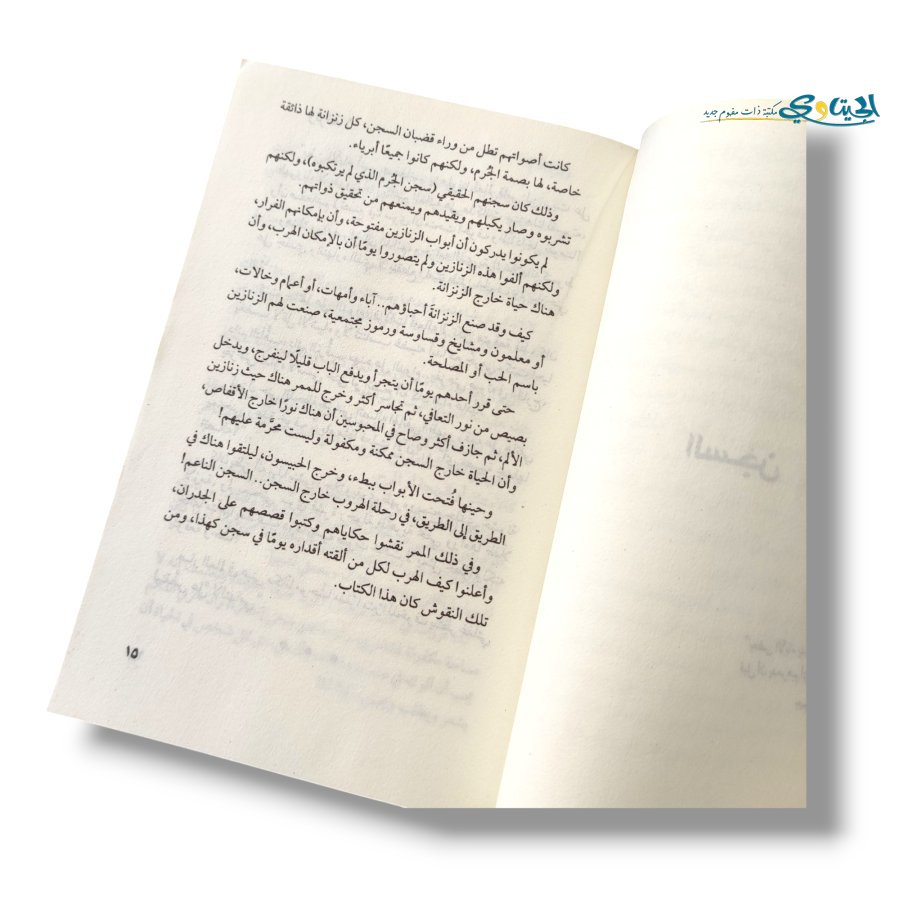 الجيتاوي مكتبة ذات مفهوم جديد
كانت أصواتهم تطل من وراء قضبان السجن، كل زنزانة لها ذائقة
خاصة، لها بصمة الجُرم، ولكنهم كانوا جميعًا أبرياء.
وذلك كان سجنهم الحقيقي (سجن الجُرم الذي لم يرتكبوه)، ولكنهم
تشربوه وصار يكبلهم ويقيدهم ويمنعهم من تحقيق ذواتهم.
لم يكونوا يدركون أن أبواب الزنازين مفتوحة، وأن بإمكانهم الفرار،
ولكنهم ألفوا هذه الزنازين ولم يتصوروا يومًا أن بالإمكان الهرب، وأن
هناك حياة خارج الزنزانة.
كيف وقد صنع الزنزانةَ أحباؤهم.. آباء وأمهات، أو أعمام وخالات،
أو معلمون ومشايخ وقساوسة ورموز مجتمعية، صنعت لهم الزنازين
باسم الحب أو المصلحة.
حتى قرر أحدهم يومًا أن يتجرأ ويدفع الباب قليلًا لينفرج، ويدخل
بصيص من نور التعافي، ثم تجاسر أكثر وخرج للممر هناك حيث زنازين
الألم، ثم جازف أكثر وصاح في المحبوسين أن هناك نورًا خارج الأقفاص،
وأن الحياة خارج السجن ممكنة ومكفولة وليست محرَّمة عليهم!
وحينها فُتحت الأبواب ببطء، وخرج الحبيسون، ليلتقوا هناك في
الطريق إلى الطريق، في رحلة الهروب خارج السجن.. السجن الناعم!
وفي ذلك الممر نقشوا حكاياهم وكتبوا قصصهم على الجدران،
وأعلنوا كيف الهرب لكل من ألقته أقداره يومًا في سجن كهذا، ومن
تلك النقوش كان هذا الكتاب.
١٥
السجن